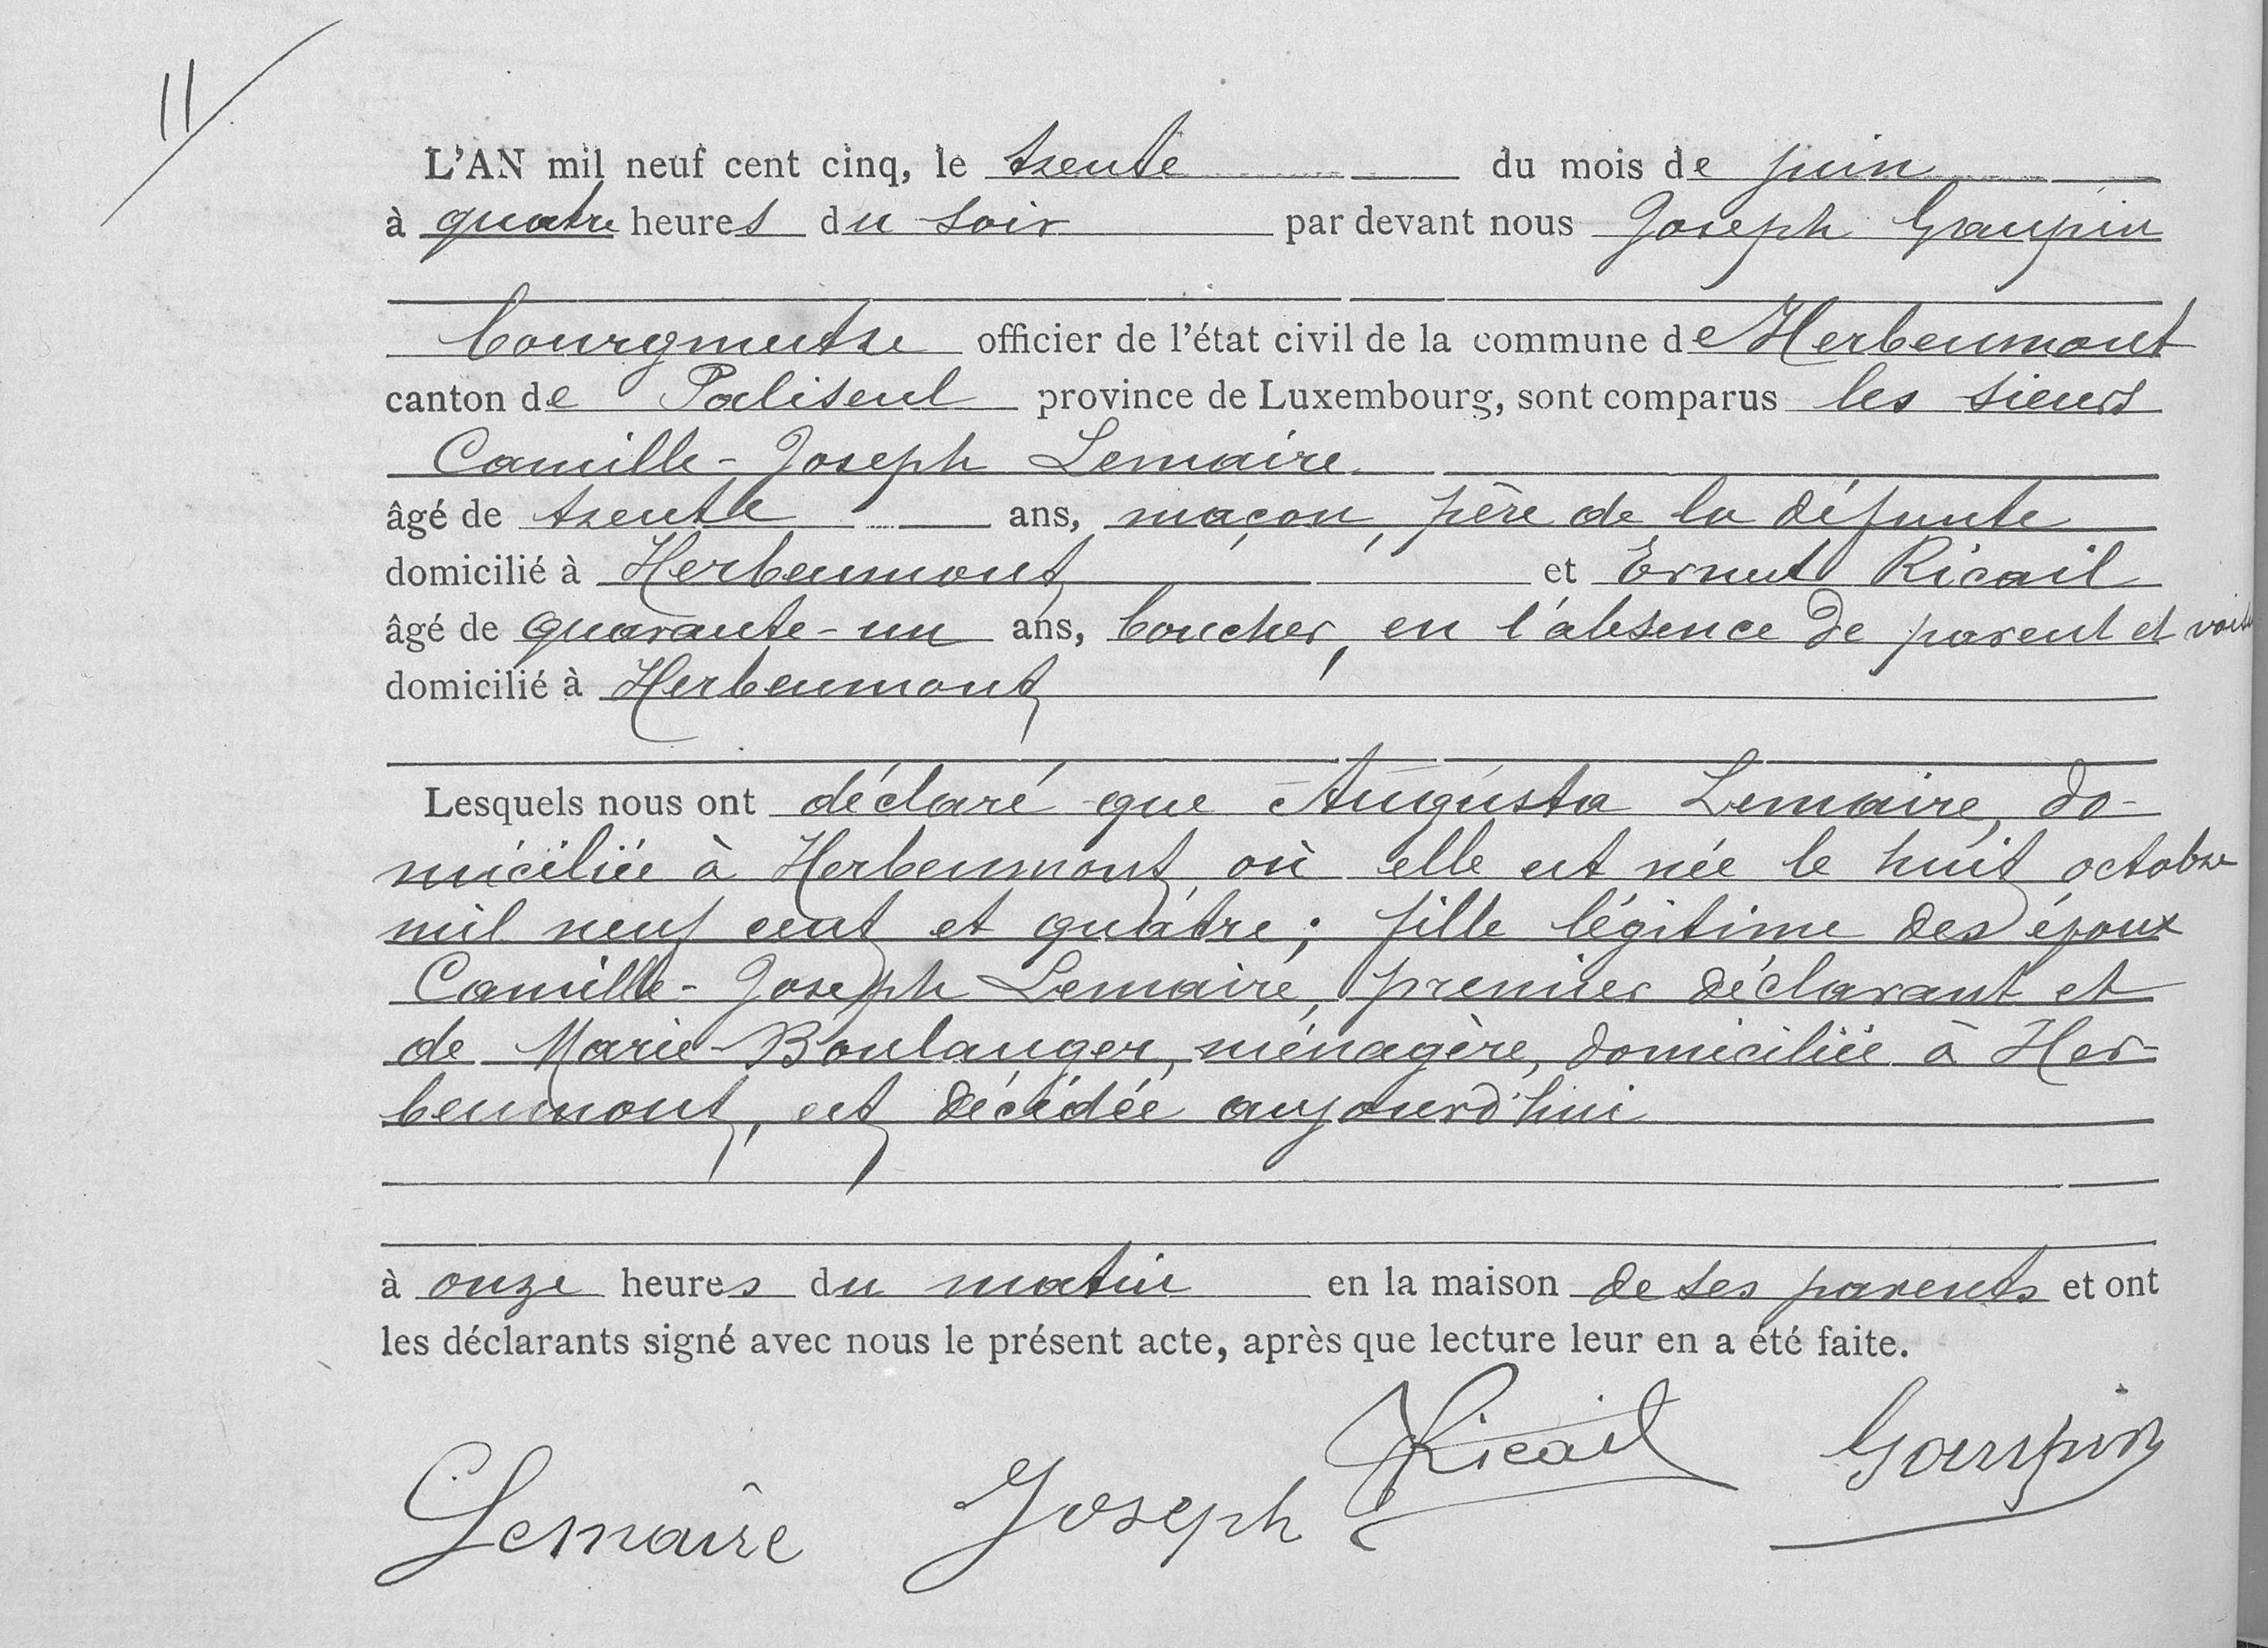 11
L'AN mil neuf cent cinq, le trente du mois de juin
à quatre heures du soir par devant nous Joseph Gaupin
bourgmestre officier de l'état civil de la commune de Herbeumont
canton de Paliseul province de Luxembourg, sont comparus les sieurs
Camille-Joseph Lemaire
âgé de trente ans, maçon, père de la défunte
domicilié à Herbeumont et Ernest Ricail
âgé de quarante-un ans, boucher, en l'absence de parent et
domicilié à Herbeumont
Lesquels nous ont déclaré que Augusta Lemaire, do-
miciliée à Herbeumont, où elle est née le huit octobre
mil neuf cent et quatre; fille légitime des époux
Camille-Joseph Lemaire, premier déclarant et
de Marie Boulanger, ménagère, domiciliée à Her-
beumont, est décédée aujourd'hui
à onze heures du matin en la maison de ses parents et ont
les déclarants signé avec nous le présent acte, après que lecture leur en a été faite.
Lemaire Joseph Ricail Gaupin